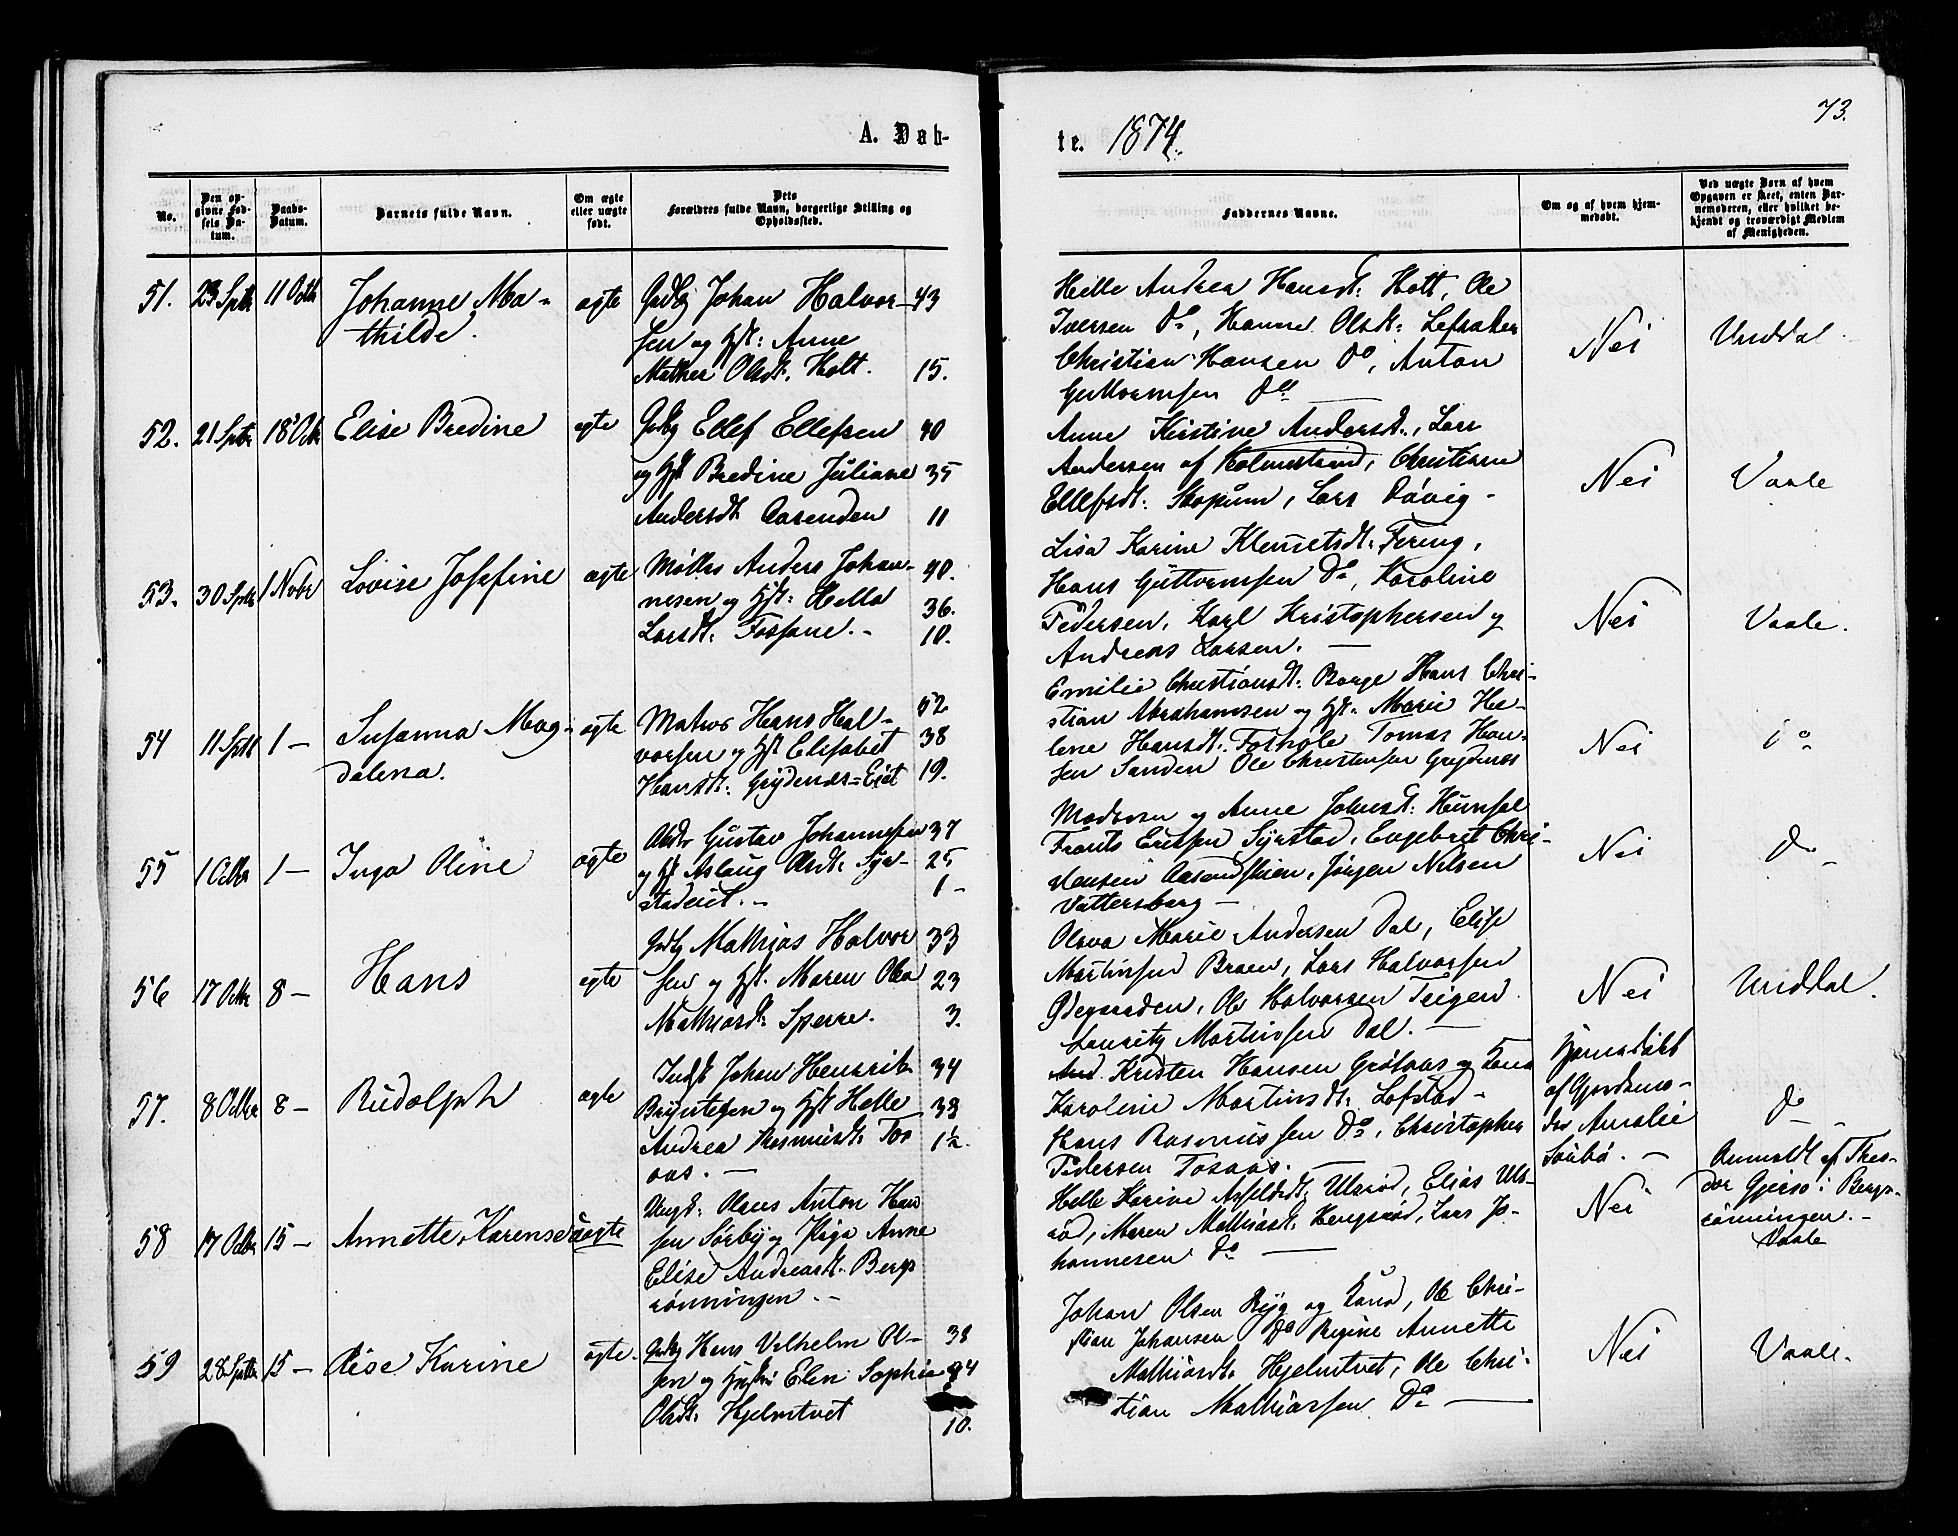 73.
A. Døb-
te. 1874.
No.
Den op-
givne Fød-
sels Da-
tum.
Daabs-
Datum.
Barnets fulde Navn.
Om ægte
eller uægte
født.
Dets
Forældres fulde Navn, borgerlige Stilling og
Opholdssted.
Faddernes Navne.
Om og af hvem hjem-
medøbt.
Ved uægte Børn af hvem
Opgaven er skeet, enten Bar-
nemoderen, eller hvilket be-
kjendt og troværdigt Medlem
af Menigheden.
51. 23 Sptbr 11 Octb Johanne Ma-
thilde.
ægte
Gbdbg Johan Halvor-
sen og Hst: Anne
Mathea Olsdt. Holt.
43
15.
Helle Andrea Hansdt: Holt, Ole
Iversen Do, Hanne Olsdt: Lefsaker
Christian Hansen Do, Anton
Guttormsen Do
Nei
Unddal.
52. 21 Sptbr 18 Octbr Elise Bredine
ægte
Gbdbg Ellef Ellefsen
og Hst Bredine Juliane
Andersdt. Aasenden
40
35
11
Anne Kirstine Andersdt., Lars
Andersen af Holmestrand, Christiane
Ellefsdt: Skopum, Lars Døvig-
Nei
Vaale
53. 30 Sptbr 1 Novbr Lovise Josefine
ægte
Møller Anders Johan-
nesen og Hst: Hella
Larsdt: Fossane.-
40.
36.
10.
Lisa Karine Klemetsdt: Fering,
Hans Guttormsen Do, Karoline
Pedersen, Karl Kristophersen og
Andreas Larsen. —
Nei
Vaale.
54 11 Sptbr 1 — Susanna Mag-
dalena.
ægte
Matros Hans Hal-
vorsen og Hst Elisabet
Hansdt: Grydenæs-Eiet
52
38
19.
Emilie Christiansdt: Borge Hans Chri-
stian Abrahamsen og Hst. Marie He-
lene Hansdt: Tomas Han-
sen Sanden Ole Christensen Grydenæs
Nei
Do
55 1 Octbr 1 — Inga Oline
ægte
Gustav Johannesen
og Hst Aslaug Olsdt:
37
25
1 -
Moderen og Anne Johnsdt: Hunsal
Frants Eriksen Syrstad, Engebret Chri-
stensen Jørgen Nilsen
Vattersberg —
Nei
Do
56 17 Octbr 8 — Hans
ægte
Gbdbg Mathias Halvor
sen og Hst. Maren Olea
Mathiasdt: Sperre.
33
23
3.
Olava Marie Andersen Dal, Elise
Martinsen Braen, Lars Halvorsen
Ødegaarden, Ole Halvorsen Teigen
Lauritz Martinsen Dal. —
Nei
Unddal.
57. 8 Octbr 8 — Rudolph
ægte
Indst Johan Henrik
Bryntesen og Hst Helle
Andrea Rasmusdt:
aas. —
34
38
1½.
Kristen Hansen og Kona
Karoline Martinsdt: Lofstad-
Hans Rasmussen Do, Christopher
Pedersen Tosaas. —
Hjemmedøbt
af Gjordemo-
der Amalie
Do —
58 17 Octbr 15 — Annette Karensen
uægte
Ungk: Olaus Anton Han
sen Sørby og Pige Anne
Elise Andreasdt. Bergs
rønningen.-
Helle Karine Ulsrød, Elias Uls-
rød, Maren Mathiasdt: Lars Jo-
hannesen Do —
Nei
Anmeldt af Theo-
dor Gjersø i Bergs-
rønningen.-
Vaale
59 28 Sptbr 15 — Karine
ægte.
Gbdbg Hans Vilhelm Ol-
sen og Elen Sophie
Olsdt: Hjelmtvet
38
34
10.
Johan Olsen Ryg og Kona, Ole Chri-
stian Johansen Do Regine Annette
Mathiasdt: Hjelmtvet, Ole Chri-
stian Mathiassen Do —
Nei
Vaale.